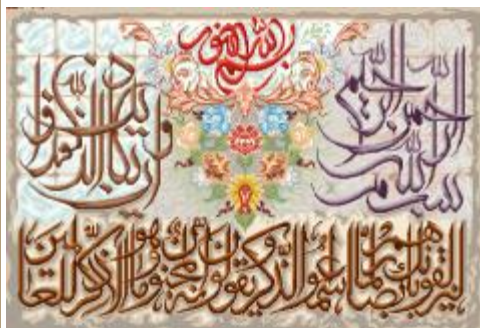 بسم الله النور
بسم الله الرحمن الرحيم
وان يكاد الذين كفروا
ليزلقونك بابصارهم لما سمعوا الذكر ويقولون انه لمجنون وما هو الا ذكر للعالمين